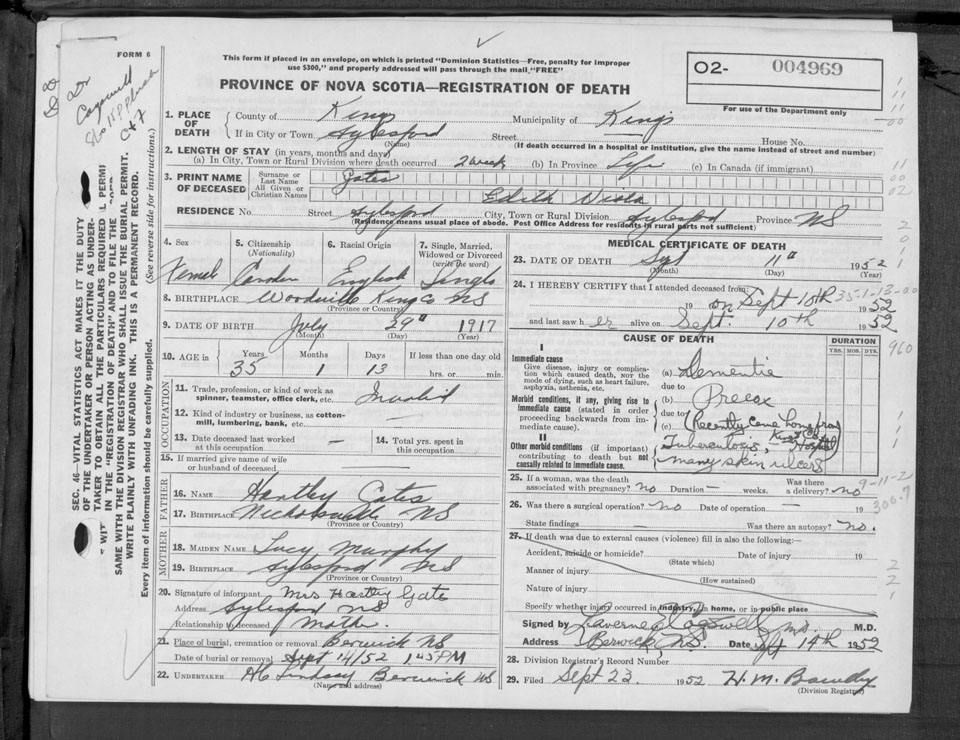 FORM 6
This form if placed in an envelope, on which is printed "Dominion Statistics—Free, penalty for improper
use $300," and properly addressed will pass through the mail "FREE"
PROVINCE OF NOVA SCOTIA—REGISTRATION OF DEATH
O2- 004969
For use of the Department only
Dr Cogswell
SEC. 46—VITAL STATISTICS ACT MAKES IT THE DUTY
OF THE UNDERTAKER OR PERSON ACTING AS UNDER-
TAKER TO OBTAIN ALL THE PARTICULARS REQUIRED
IN THE "REGISTRATION OF DEATH" AND TO FILE THE
SAME WITH THE DIVISION REGISTRAR WHO SHALL ISSUE THE BURIAL PERMIT.
WRITE PLAINLY WITH UNFADING INK. THIS IS A PERMANENT RECORD.
Every item of information should be carefully supplied. (See reverse side for instructions.)
1. PLACE OF DEATH County of Kings Municipality of Kings
If in City or Town, Aylesford Street — House No.
(Name) (If death occurred in a hospital or institution, give the name instead of street and number)
2. LENGTH OF STAY (in years, months and days)
(a) In City, Town or Rural Division where death occurred 2 week (b) In Province Life (c) In Canada (if immigrant)
3. PRINT NAME OF DECEASED Surname or Last Name Gates
All Given or Christian Names Edith Viola
RESIDENCE No. Street Aylesford City, Town or Rural Division Aylesford Province NS
(Residence means usual place of abode. Post Office Address for residents in rural parts not sufficient)
4. Sex 5. Citizenship (Nationality) 6. Racial Origin 7. Single, Married, Widowed or Divorced (write the word)
Female English Single
8. BIRTHPLACE Woodville Kings Co NS
(Province or Country)
9. DATE OF BIRTH July 29" 1917
(Month) (Day) (Year)
10. AGE in Years Months Days If less than one day old
35 1 13 hrs. or min.
OCCUPATION
11. Trade, profession, or kind of work as spinner, teamster, office clerk, etc. Invalid
12. Kind of industry or business, as cotton-mill, lumbering, bank, etc. —
13. Date deceased last worked at this occupation — 14. Total yrs. spent in this occupation —
15. If married give name of wife or husband of deceased —
FATHER
16. NAME Hartley Gates
17. BIRTHPLACE NS
(Province or Country)
MOTHER
18. MAIDEN NAME Lucy Murphy
19. BIRTHPLACE Aylesford NS
(Province or Country)
20. Signature of informant Mrs Hartley Gate
Address Aylesford NS
Relationship to deceased Mother.
21. Place of burial, cremation or removal Berwick NS
Date of burial or removal Sept 14/52 1.45 PM
22. UNDERTAKER Lindsay Berwick NS
(Name and address)
MEDICAL CERTIFICATE OF DEATH
23. DATE OF DEATH Sept 11" 1952
(Month) (Day) (Year)
24. I HEREBY CERTIFY that I attended deceased from:
on Sept 10th 1952
and last saw her alive on Sept. 10th 1952
35-1-13-00
960
CAUSE OF DEATH DURATION
YRS. MOS. DYS.
I
Immediate cause
Give disease, injury or complication which caused death, not the mode of dying, such as heart failure, asphyxia, asthenia, etc.
(a) Dementia
due to
Morbid conditions, if any, giving rise to immediate cause (stated in order proceeding backwards from immediate cause).
(b) Precox
due to
(c) (Recently came home from Kings Co Hospital)
II
Other morbid conditions (if important) contributing to death but not causally related to immediate cause.
Tuberculosis,
many skin ulcers
25. If a woman, was the death associated with pregnancy? no Duration — weeks. Was there a delivery? no
9-11-2
26. Was there a surgical operation? no Date of operation — 19
State findings — Was there an autopsy? no.
27. If death was due to external causes (violence) fill in also the following:
Accident, suicide or homicide? Date of injury 19
(State which)
Manner of injury
(How sustained)
Nature of injury
Specify whether injury occurred in industry, in home, or in public place
Signed by Laverne Cogswell M.D. M.D.
Address Berwick, NS. Date Sept 14th 1952
28. Division Registrar's Record Number
29. Filed Sept 23 1952 H. M.
(Division Registrar)